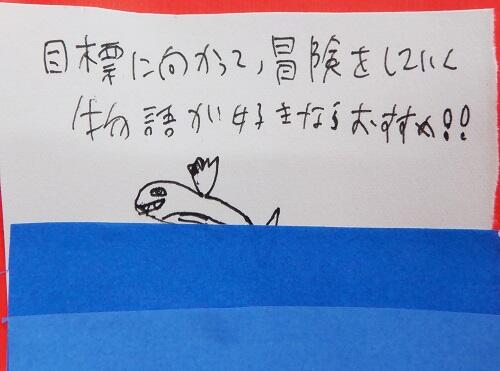 目標に向かって、冒険をしていく
物語が好きならおすすめ!!